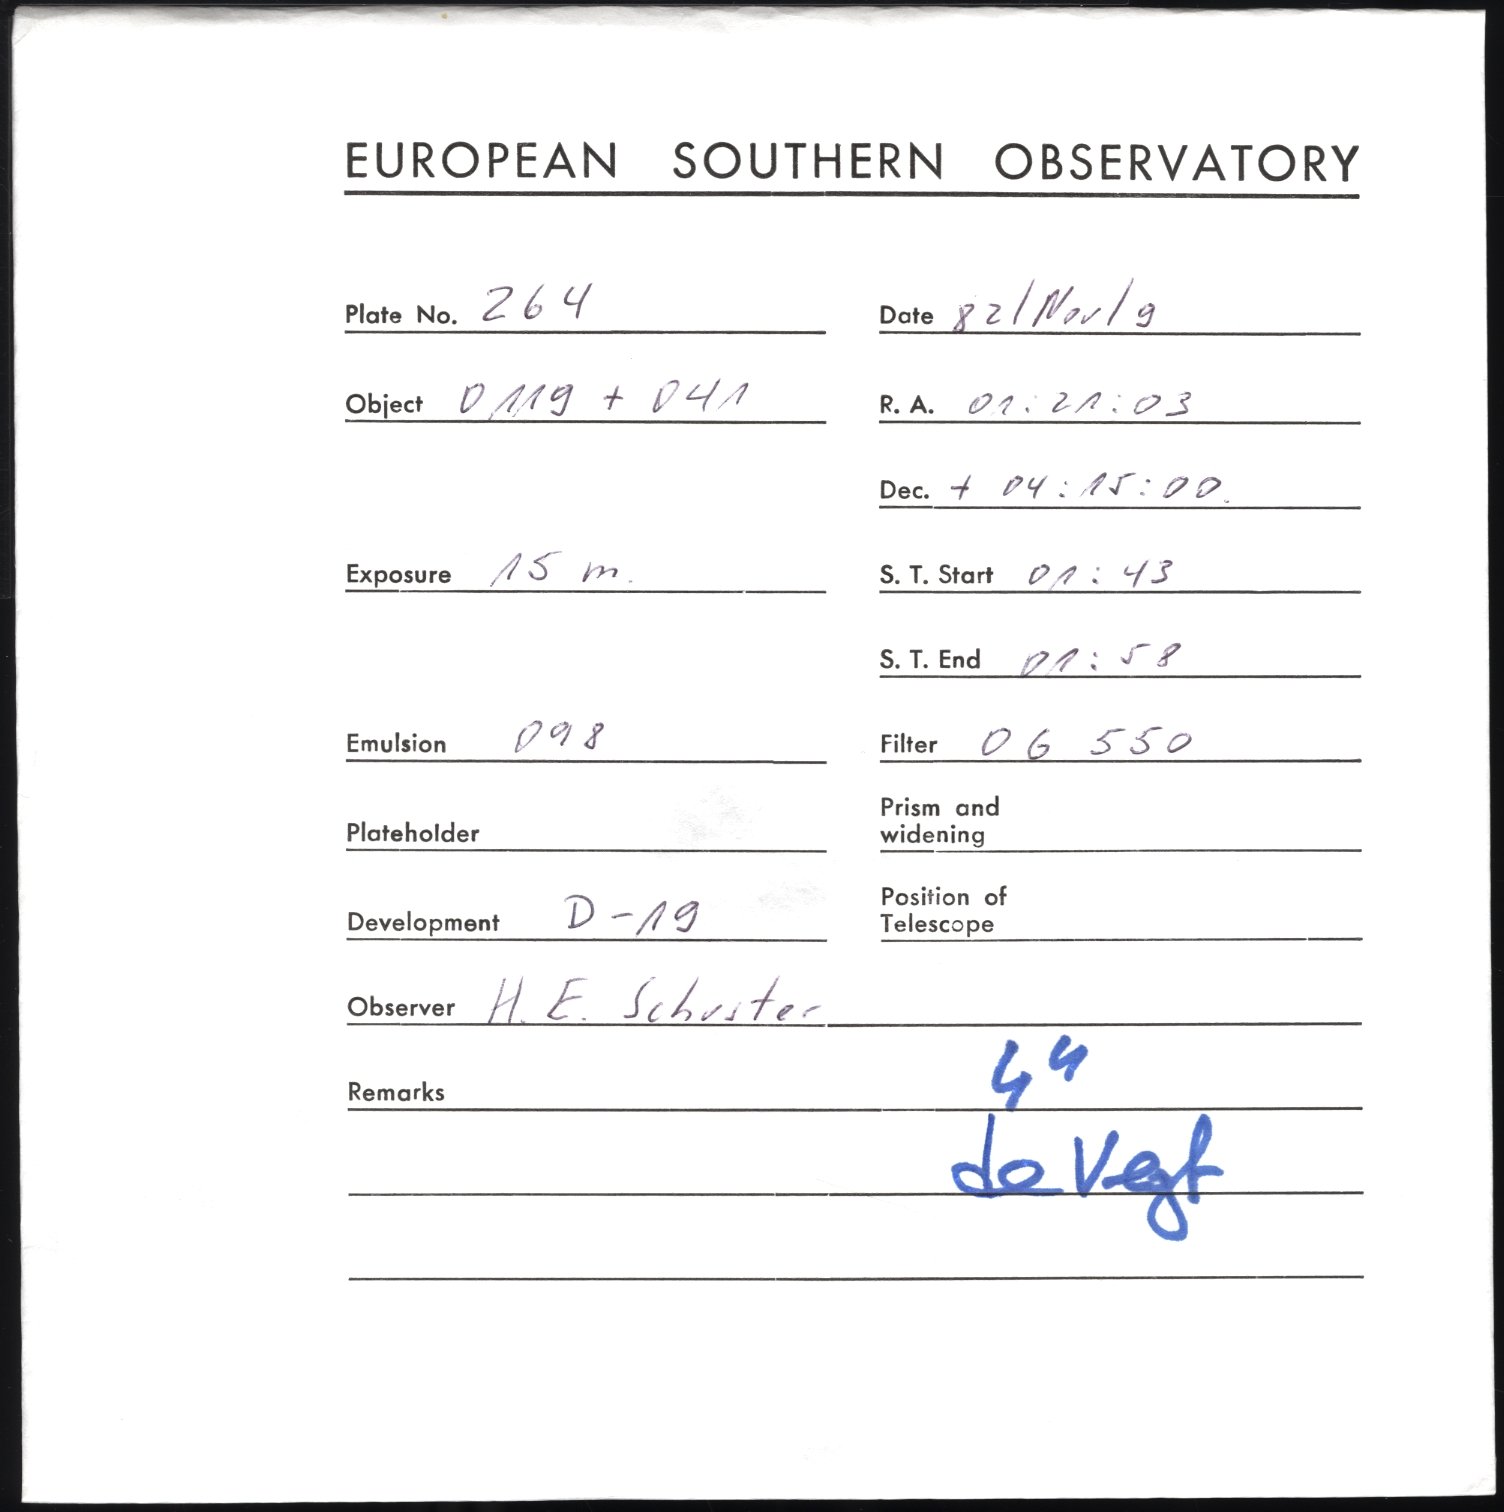 EUROPEAN SOUTHERN OBSERVATORY
Plate No. 264 Date 82/Nov/9
Object 0119 + 041 R. A. 01:21:03
Dec. + 04:15:00.
Exposure 15 m. S. T. Start 01:43
S. T. End 01:58
Emulsion 098 Filter OG 550
Plateholder Prism and widening
Development D-19 Position of Telescope
Observer H. E. Schuster
Remarks
de Vegt